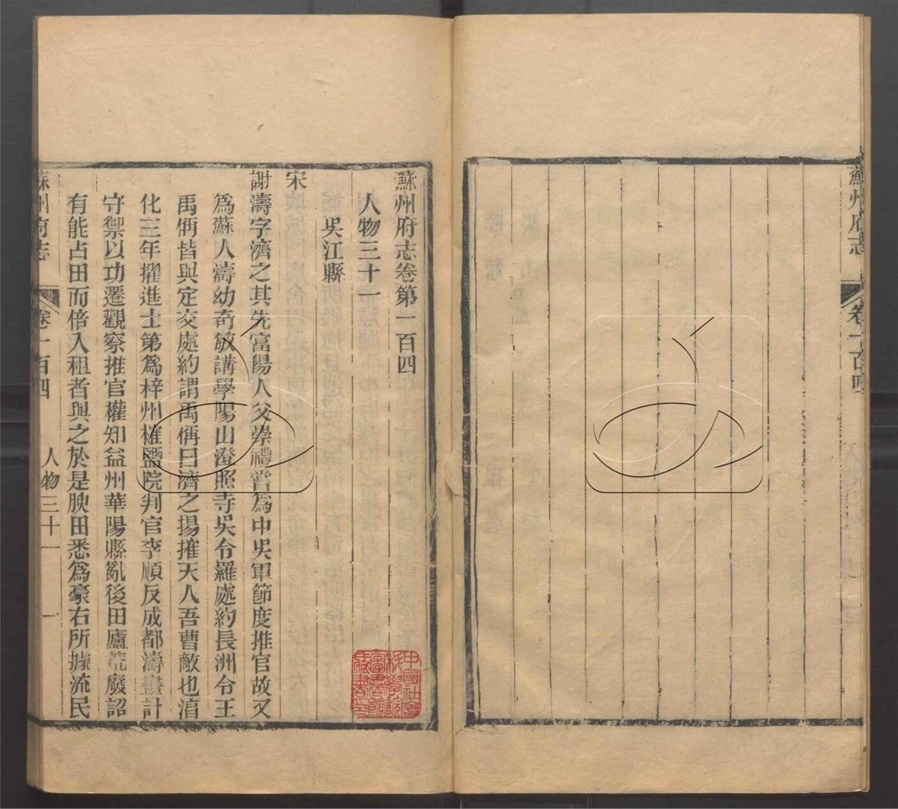 蘇州府志
卷一百四
蘇州府志卷第一百四
人物三十一
吳江縣
宋
謝濤字濟之其先富陽人父崇禮嘗爲中吳軍節度推官故又
爲蘇人濤幼奇敏講學陽山澄照寺吳令羅處約長洲令王
禹偁皆與定交處約謂禹偁曰濟之揚搉天人吾曹敵也淳
化三年擢進士第爲梓州榷鹽院判官李順反成都濤畫計
守禦以功遷觀察推官權知益州華陽縣亂後田廬荒廢詔
有能占田而倍入租者與之於是腴田悉爲豪右所據流民
蘇州府志
卷一百四
人物三十一
一